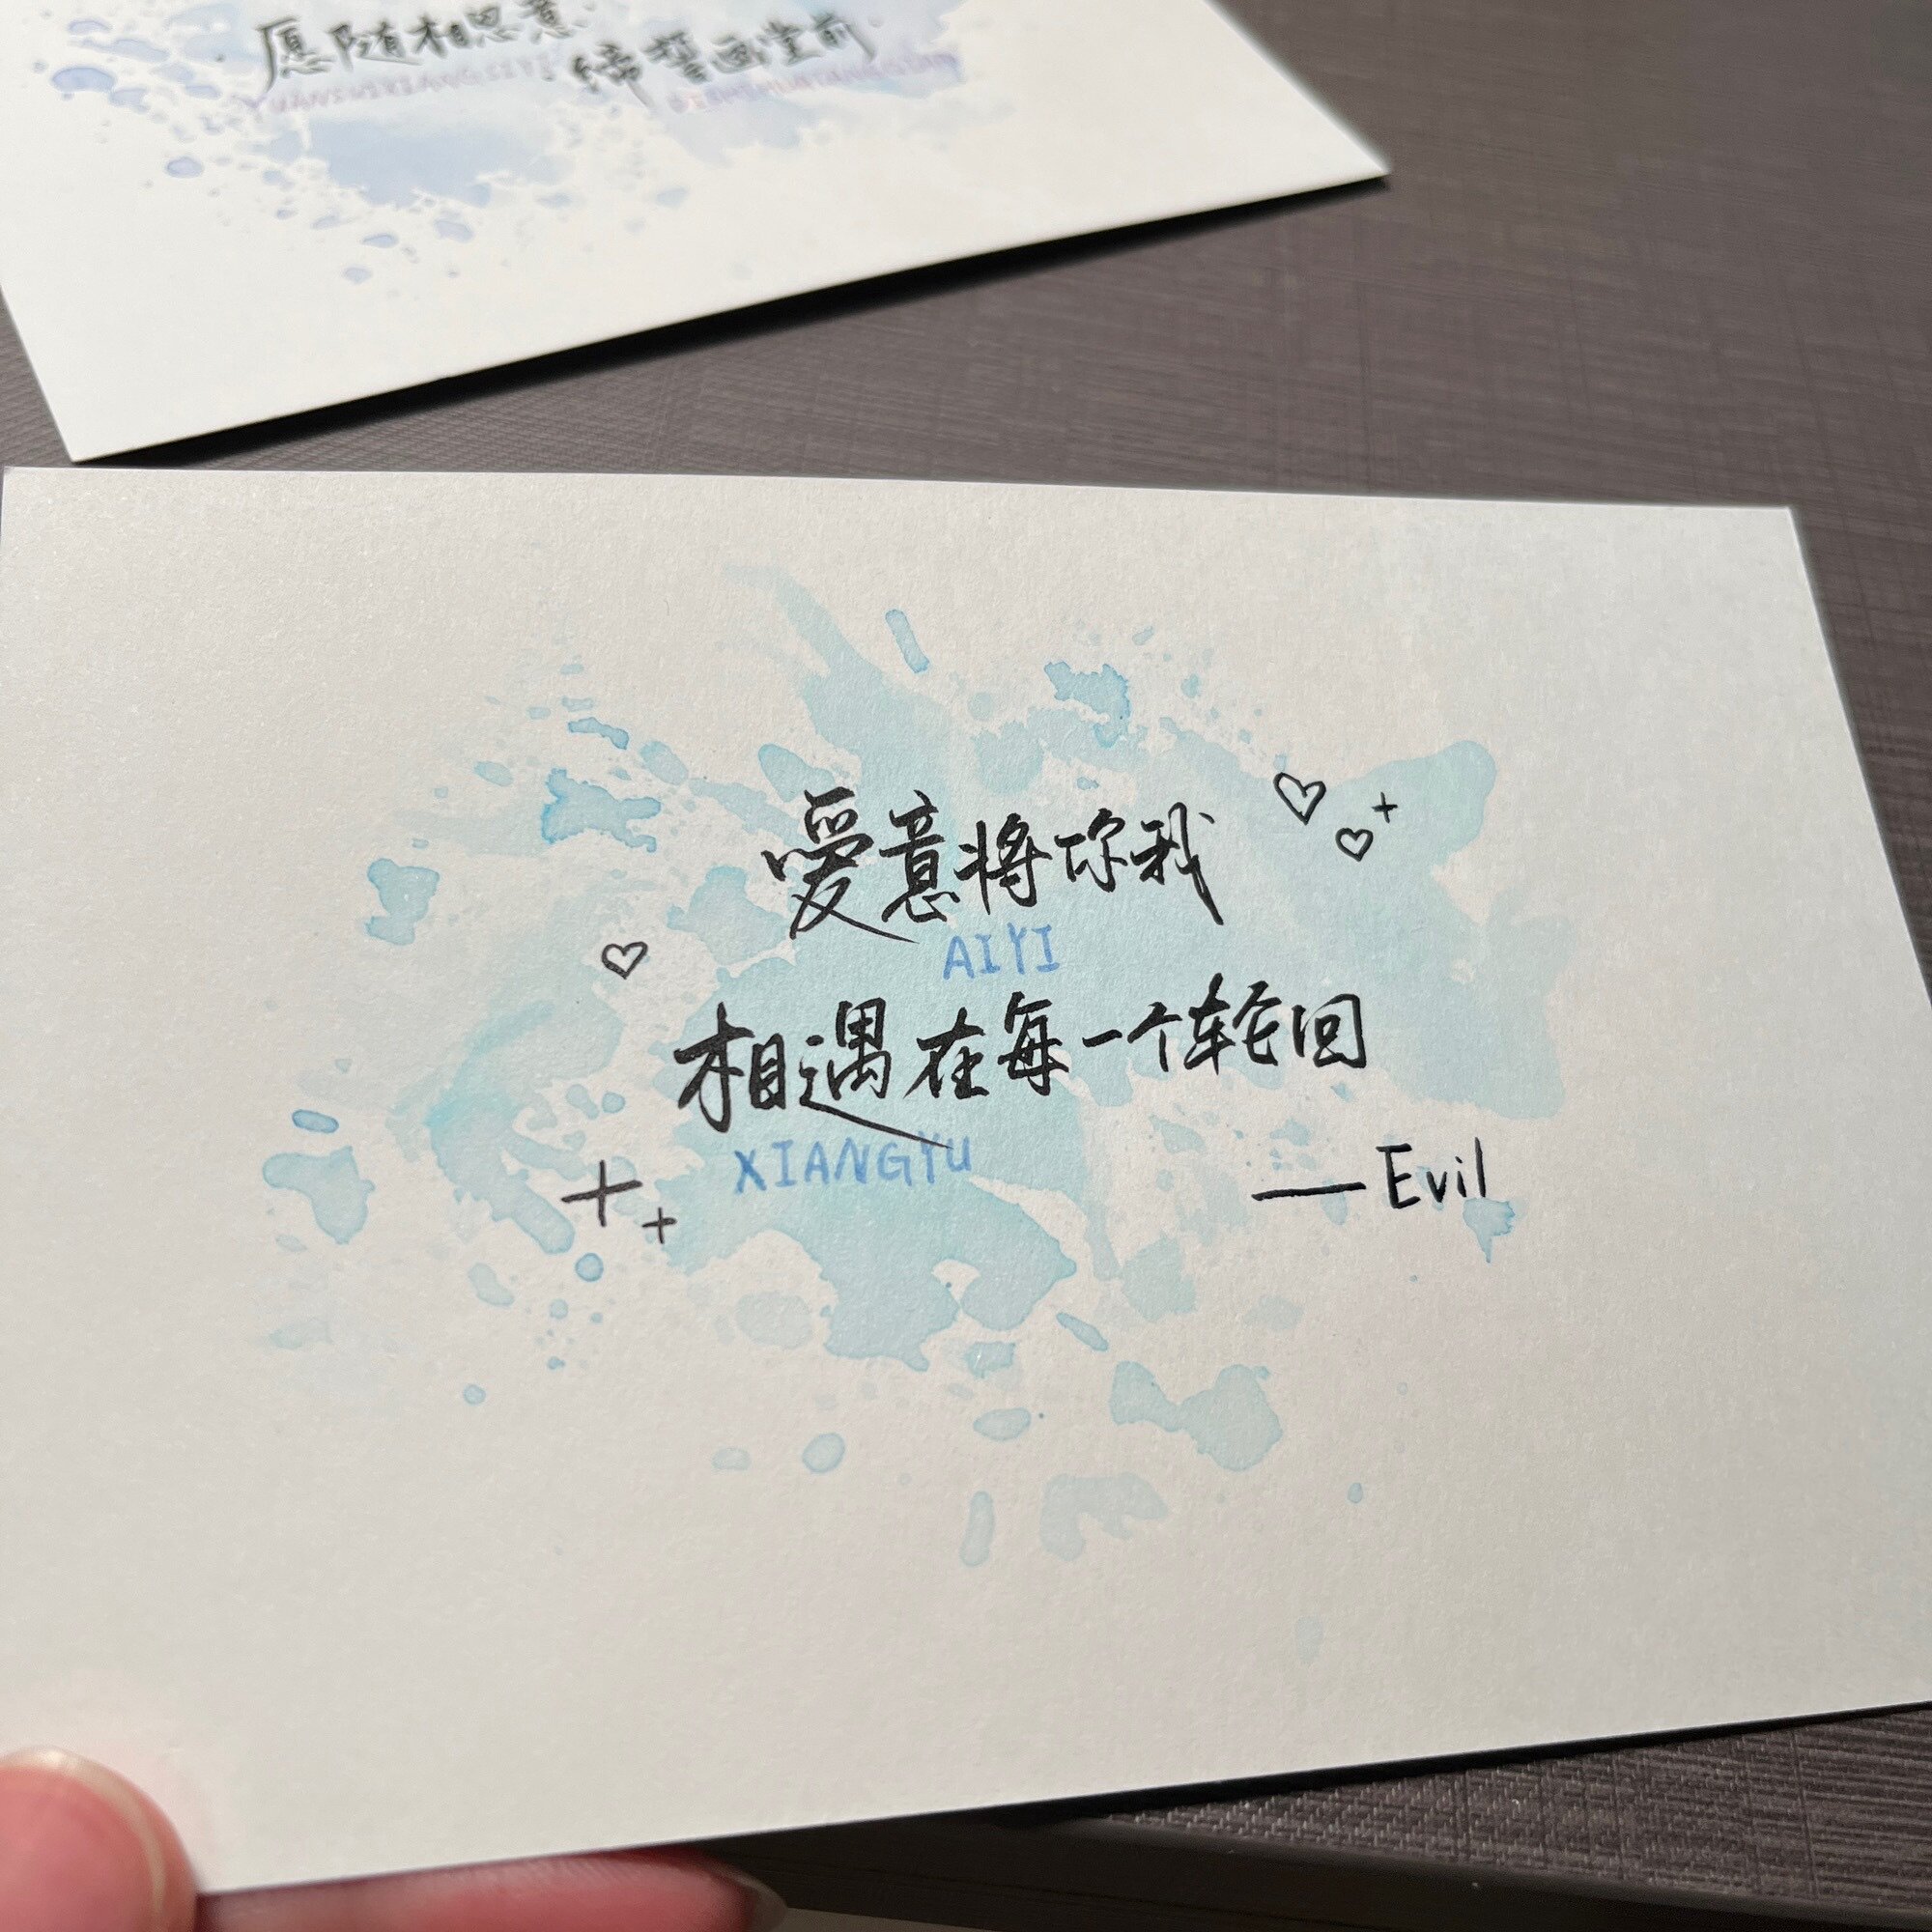 愿随相思意
YUANSUIXIANGSIYI
缔誓画堂前
爱意将你我
AIYI
相遇在每一个轮回
XIANGYU
——Evil